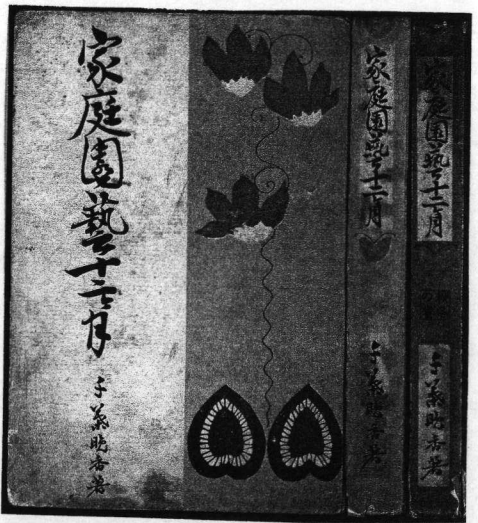 家庭園藝十二月
千葉晩香著
家庭園藝十二月
千葉晩香著
家庭園藝十二月
千葉晩香著